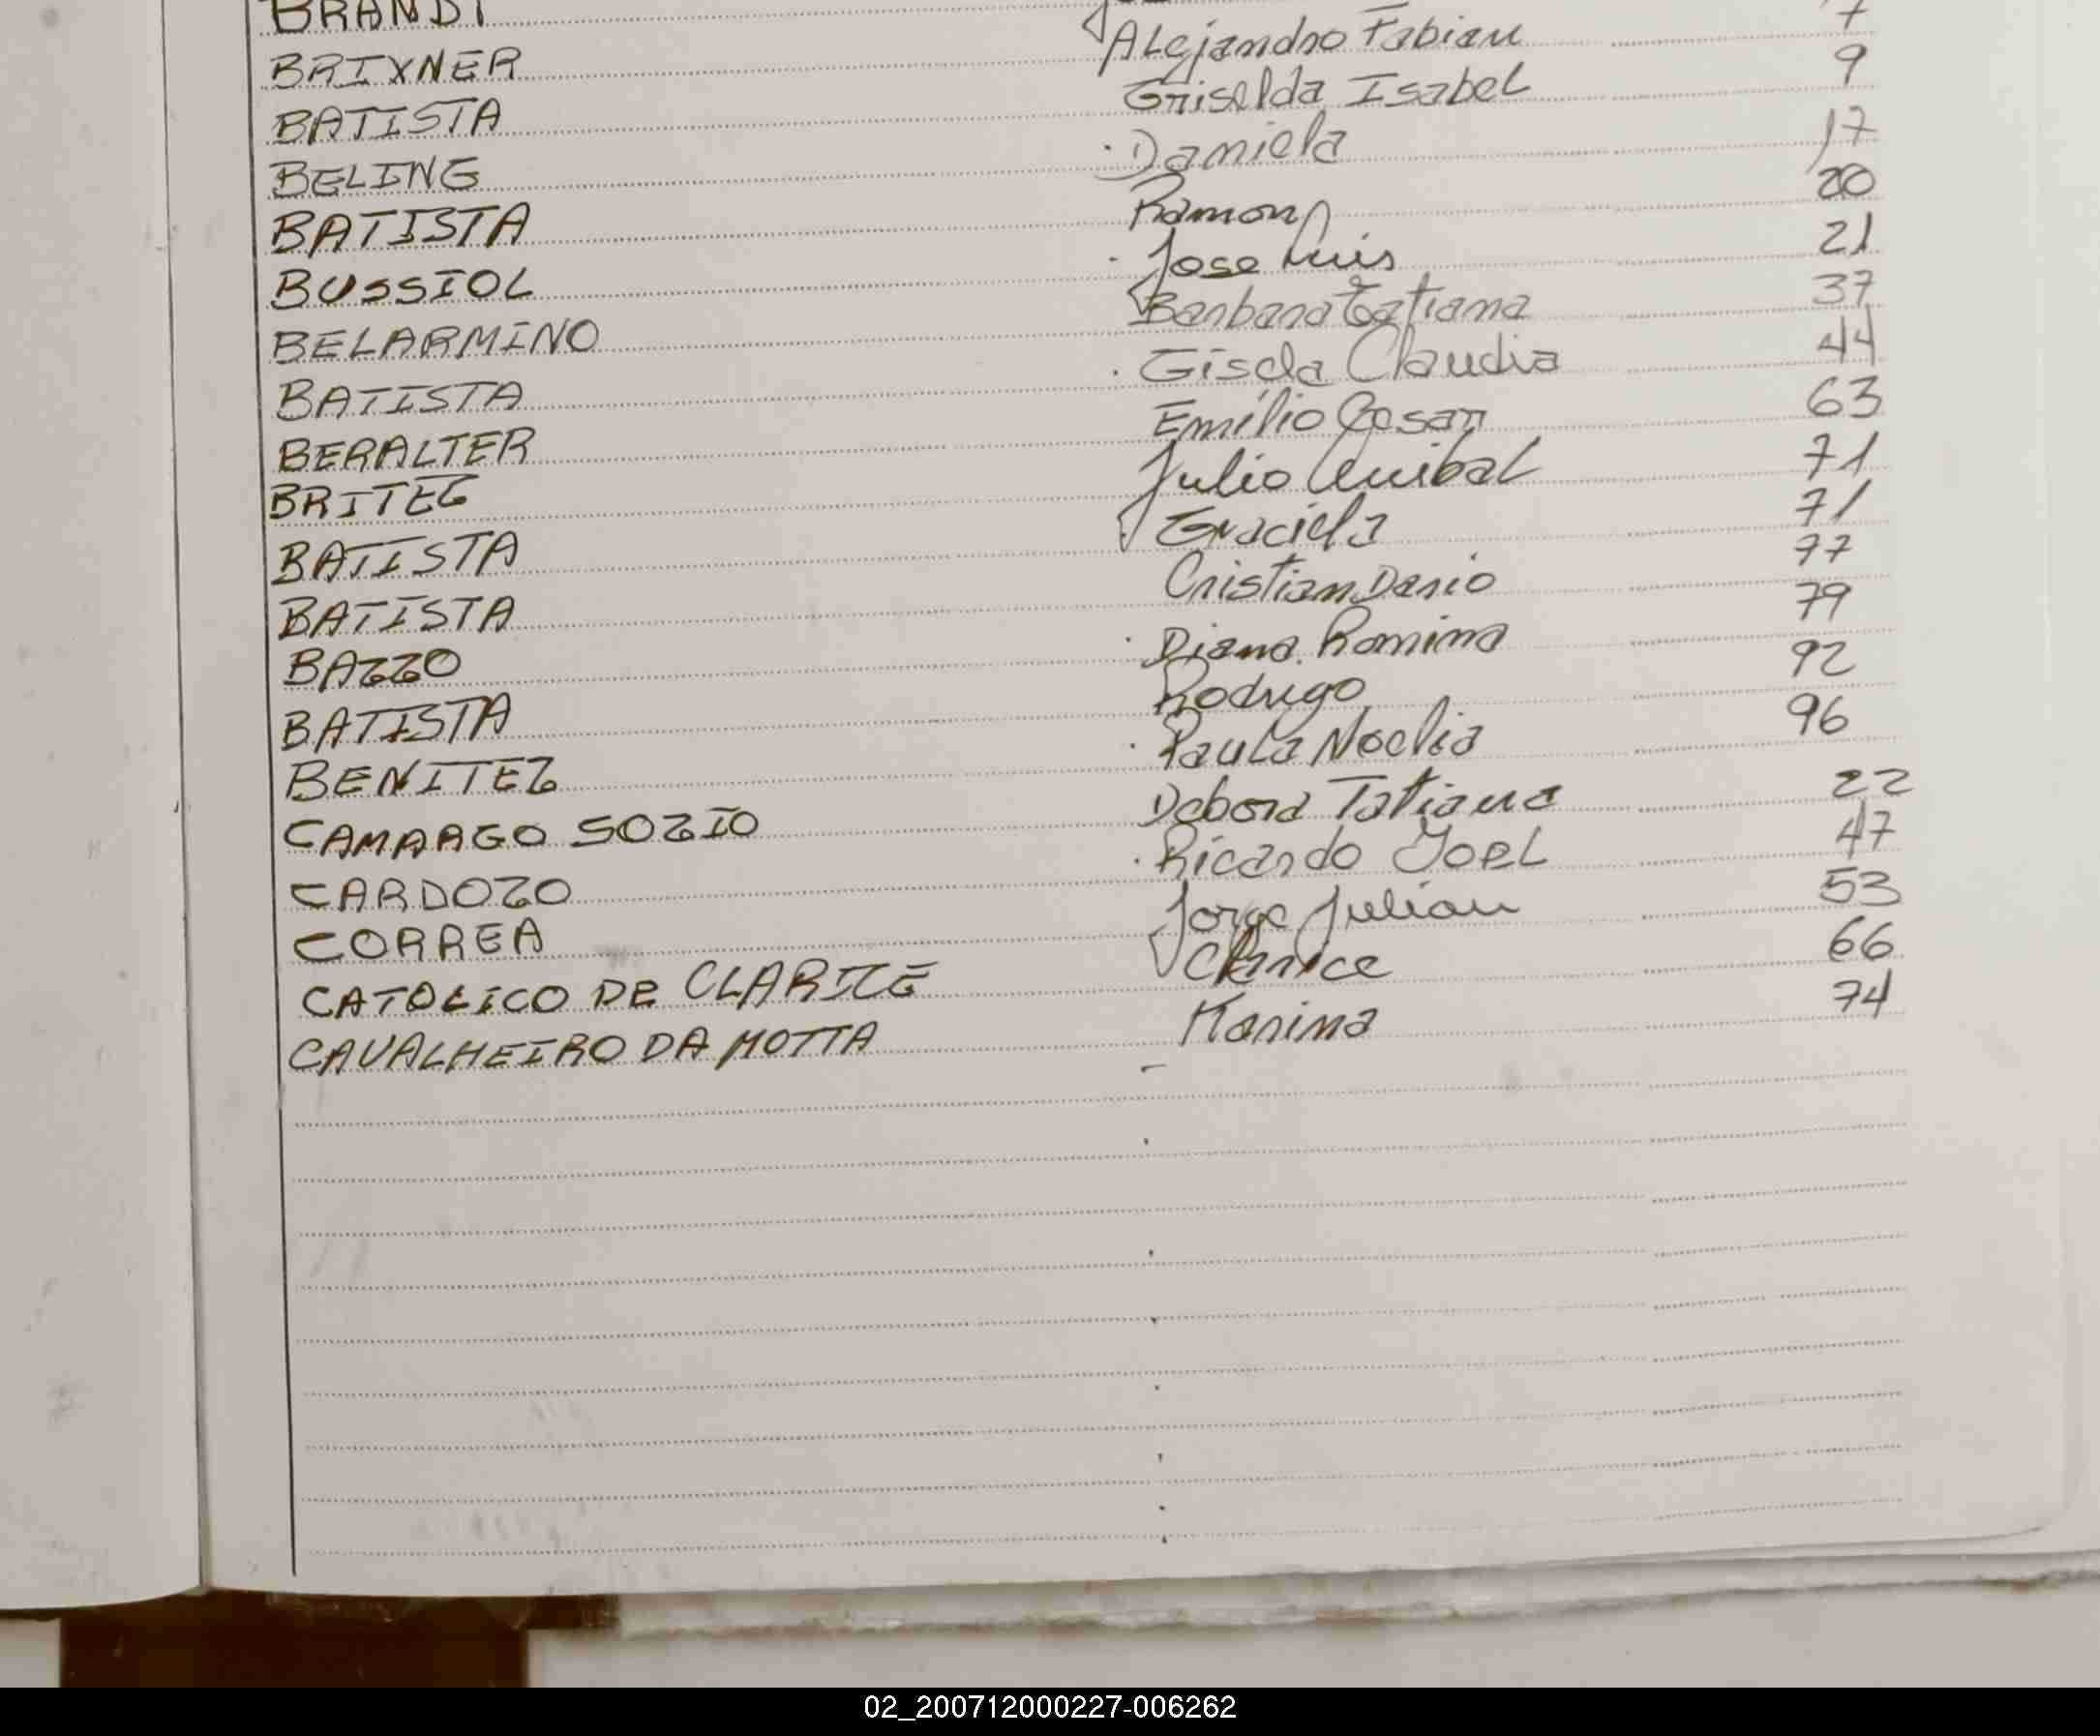 BRANDI
BRIXNER Alejandro Fabian 7
BATISTA Griselda Isabel 9
BELING Daniela 17
BATISTA Ramon 20
BUSSIOL Jose Luis 21
BELARMINO Barbara Tatiana 37
BATISTA Gisela Claudia 44
BERALTER Emilio Cesar 63
BRITEZ Julio Anibal 71
BATISTA Graciela 71
BATISTA Cristian Dario 77
BAZZO Diana Romina 79
BATISTA Rodrigo 92
BENITEZ Paula Noelia 96
CAMARGO SOZIO Debora Tatiana 22
CARDOZO Ricardo Joel 47
CORREA Jorge Julian 53
CATOLICO DE CLARICE Clarice 66
CAVALHEIRO DA MOTTA Karina 74
02_200712000227-006262